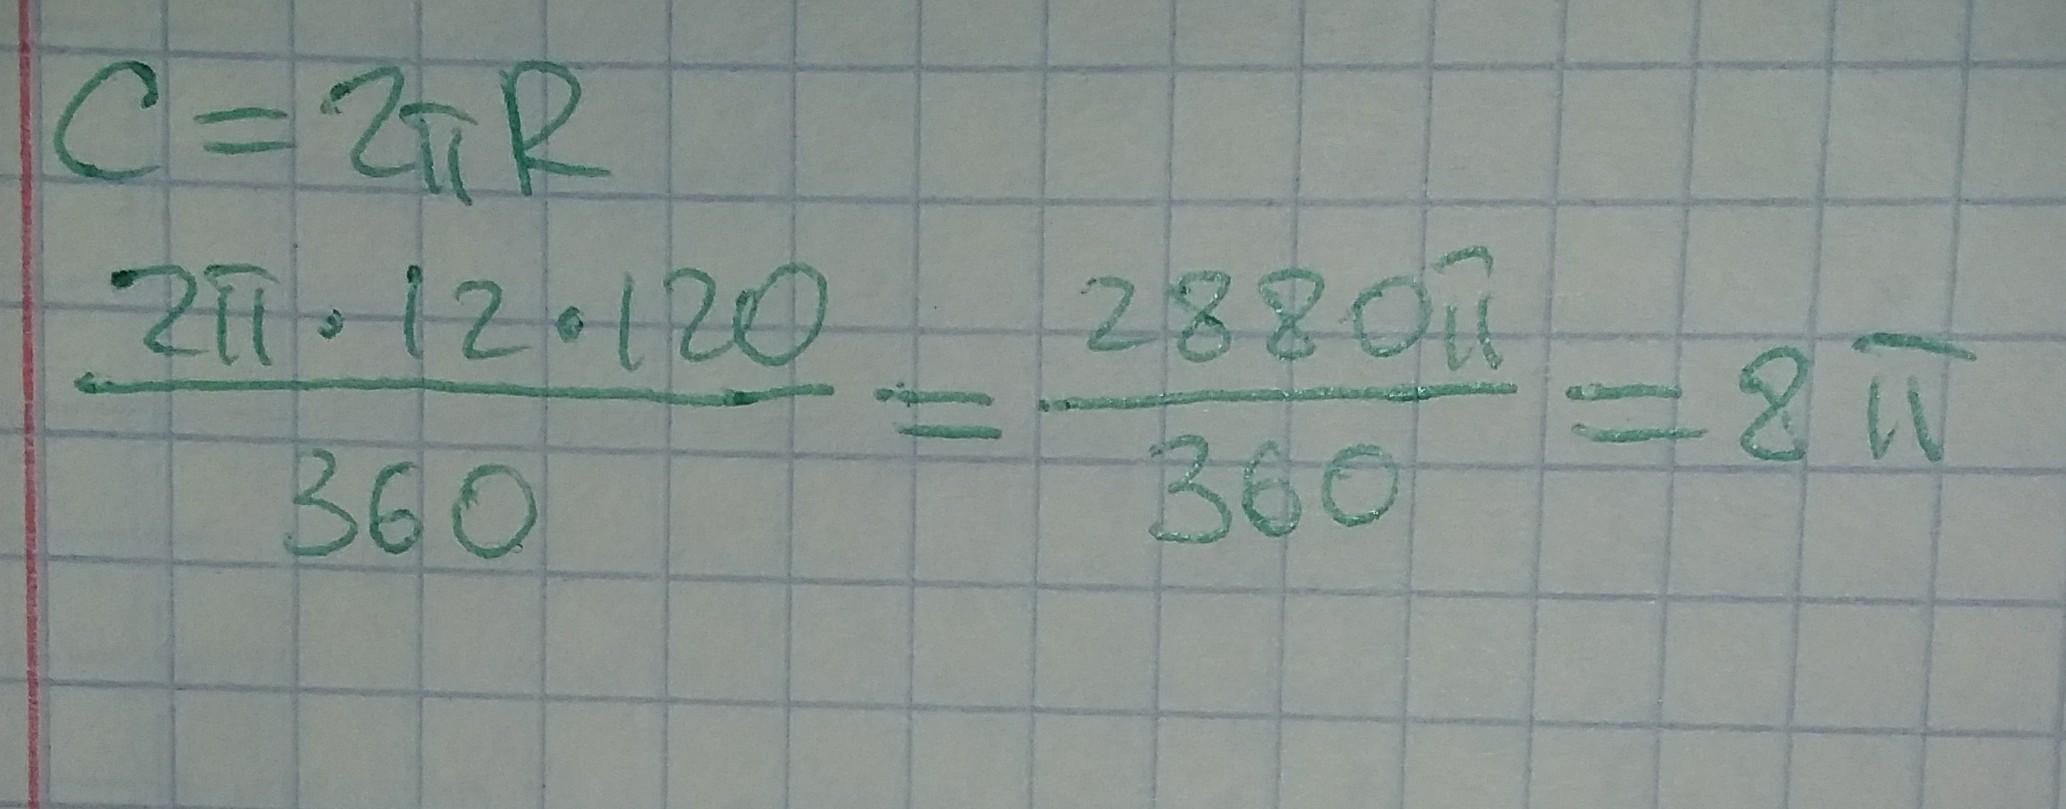 C = 2πR
2π · 12 · 120 / 360 = 2880π / 360 = 8π